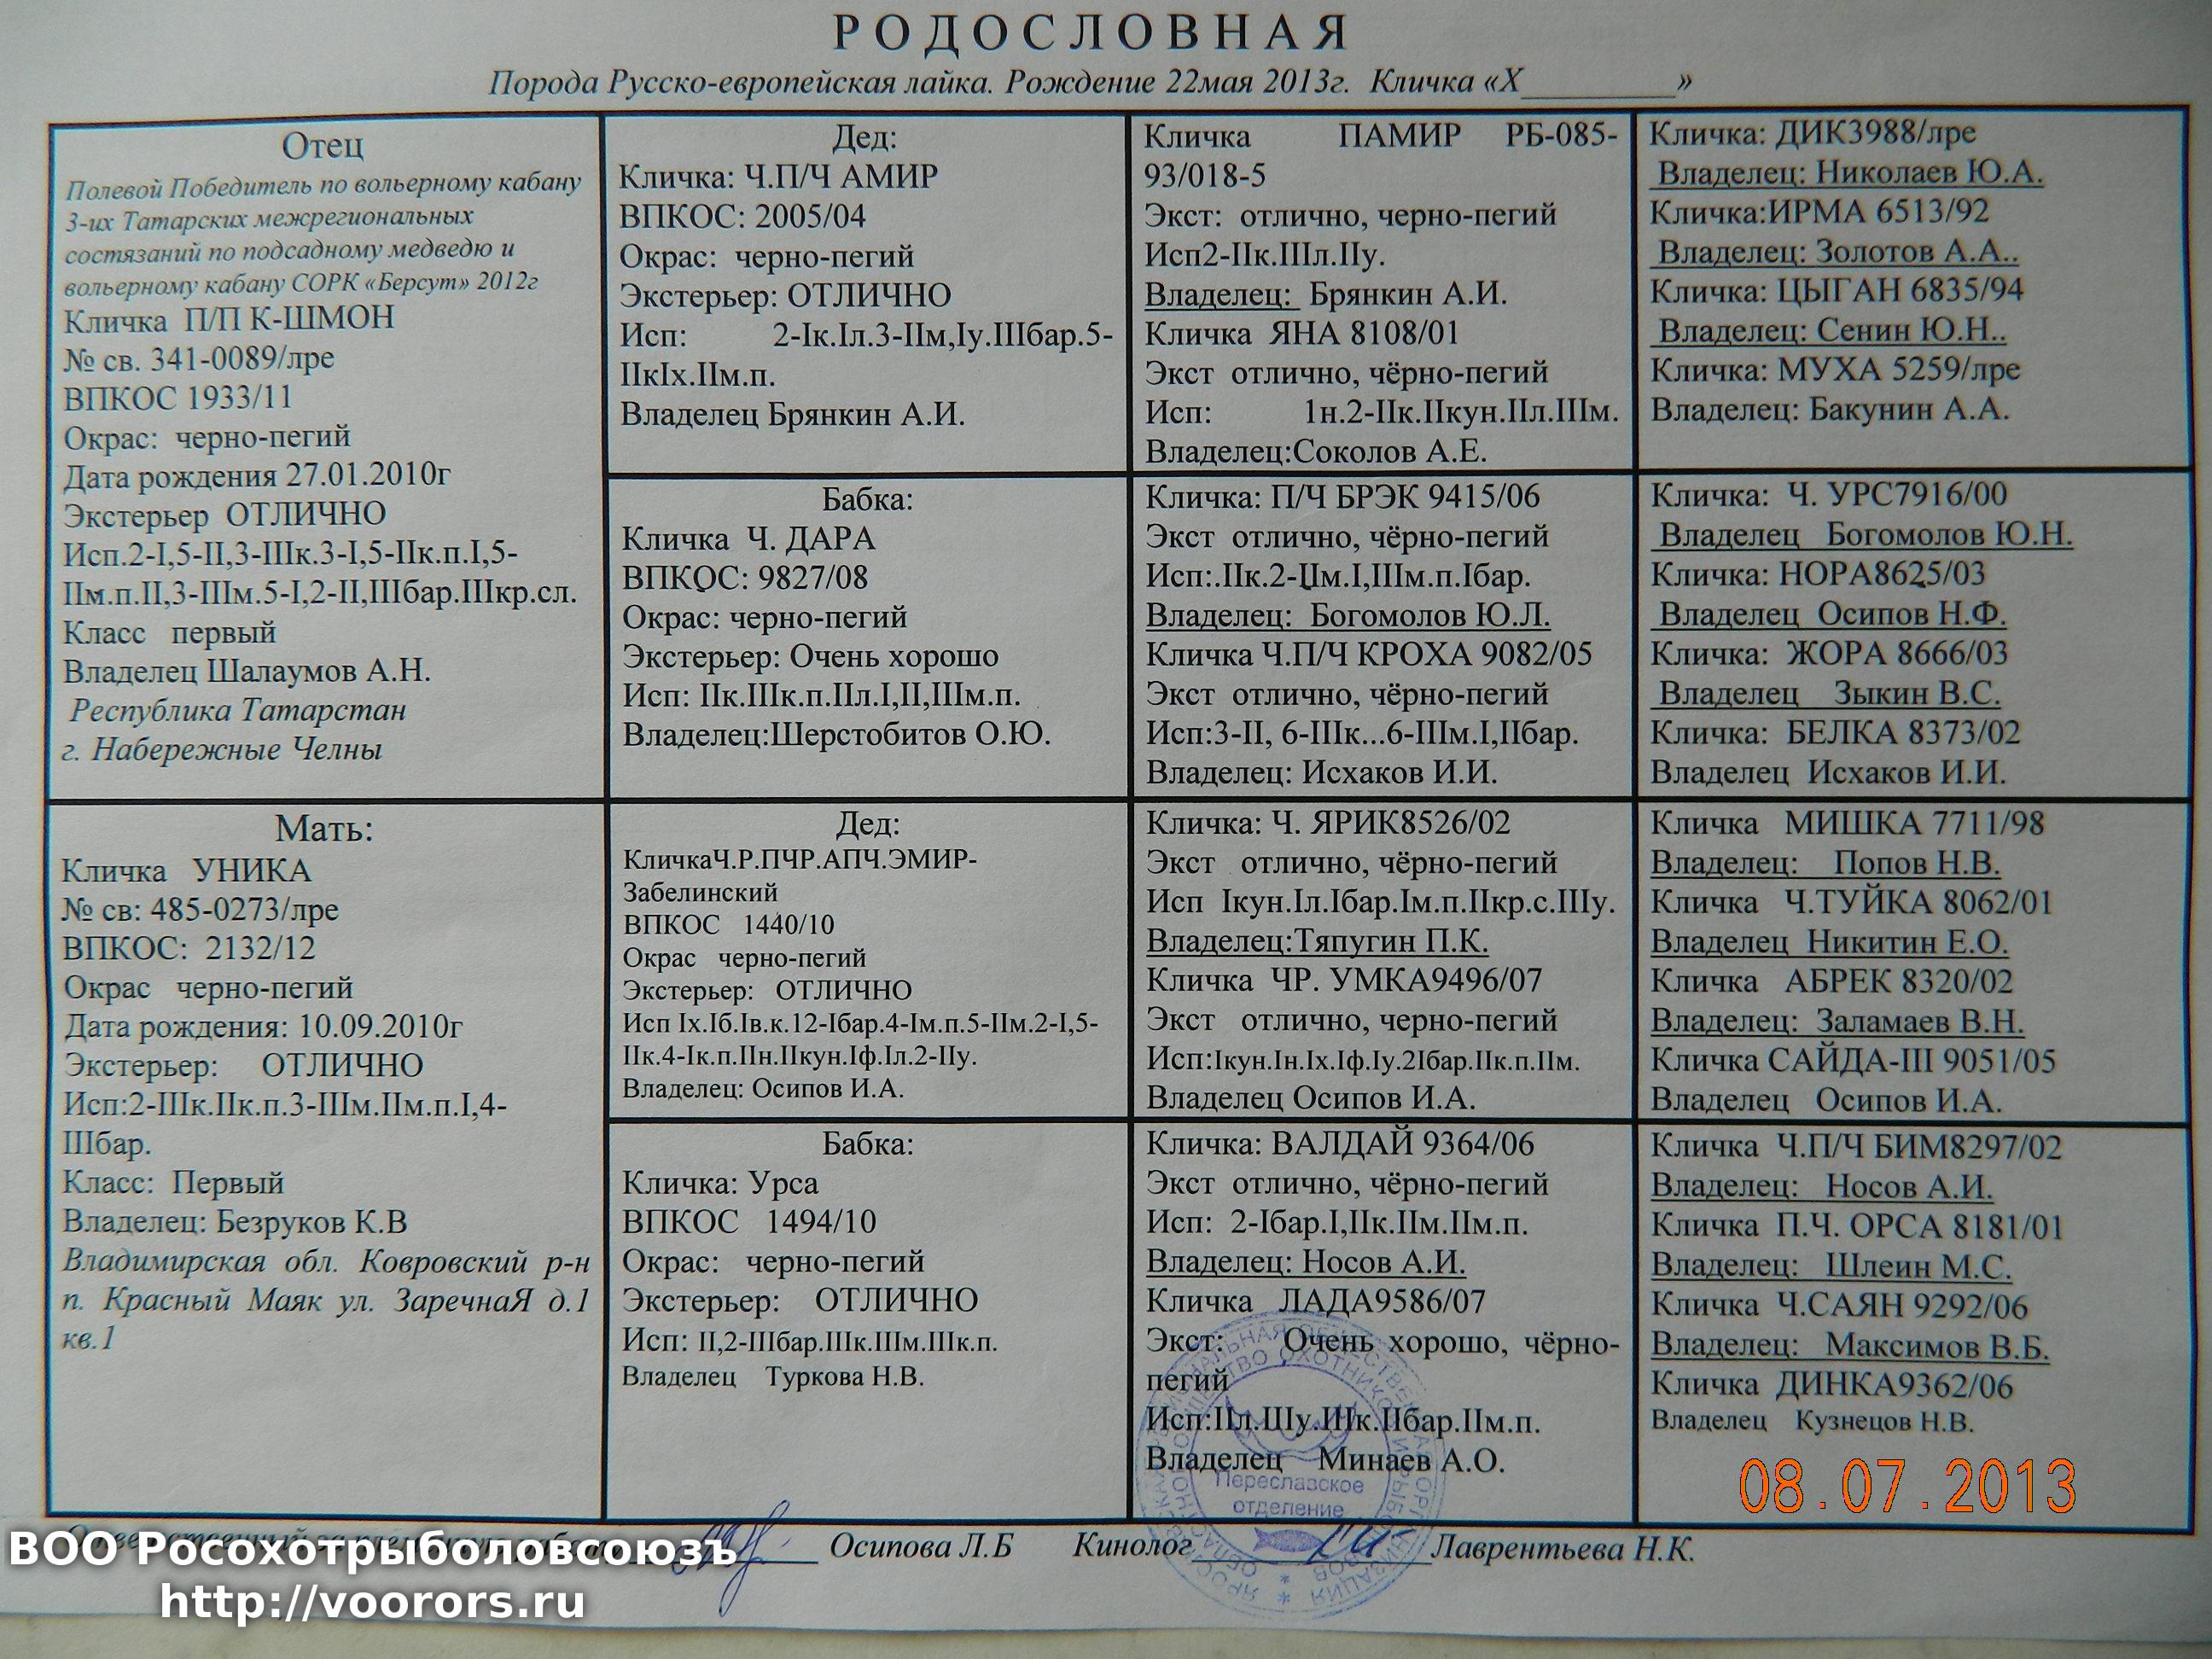 РОДОСЛОВНАЯ
Порода Русско-европейская лайка. Рождение 22мая 2013г. Кличка «Х_________»
Отец
Полевой Победитель по вольерному кабану
3-их Татарских межрегиональных
состязаний по подсадному медведю и
вольерному кабану СОРК «Берсут» 2012г
Кличка П/П К-ШМОН
№ св. 341-0089/лре
ВПКОС 1933/11
Окрас: черно-пегий
Дата рождения 27.01.2010г
Экстерьер ОТЛИЧНО
Исп.2-I,5-II,3-IIIк.3-I,5-IIк.п.I,5-
IIм.п.II,3-IIIм.5-I,2-II,IIIбар.IIIкр.сл.
Класс первый
Владелец Шалаумов А.Н.
Республика Татарстан
г. Набережные Челны
Дед:
Кличка: Ч.П/Ч АМИР
ВПКОС: 2005/04
Окрас: черно-пегий
Экстерьер: ОТЛИЧНО
Исп: 2-Iк.Iл.3-IIм,Iу.IIIбар.5-
IIкIх.IIм.п.
Владелец Брянкин А.И.
Кличка ПАМИР РБ-085-
93/018-5
Экст: отлично, черно-пегий
Исп2-IIк.IIIл.IIу.
Владелец: Брянкин А.И.
Кличка ЯНА 8108/01
Экст отлично, чёрно-пегий
Исп: 1н.2-IIк.IIкун.IIл.IIIм.
Владелец:Соколов А.Е.
Кличка: ДИК3988/лре
Владелец: Николаев Ю.А.
Кличка:ИРМА 6513/92
Владелец: Золотов А.А..
Кличка: ЦЫГАН 6835/94
Владелец: Сенин Ю.Н..
Кличка: МУХА 5259/лре
Владелец: Бакунин А.А.
Бабка:
Кличка Ч. ДАРА
ВПКОС: 9827/08
Окрас: черно-пегий
Экстерьер: Очень хорошо
Исп: IIк.IIIк.п.IIл.I,II,IIIм.п.
Владелец:Шерстобитов О.Ю.
Кличка: П/Ч БРЭК 9415/06
Экст отлично, чёрно-пегий
Исп:.IIк.2-IIм.I,IIIм.п.Iбар.
Владелец: Богомолов Ю.Л.
Кличка Ч.П/Ч КРОХА 9082/05
Экст отлично, чёрно-пегий
Исп:3-II, 6-IIIк...6-IIIм.I,IIбар.
Владелец: Исхаков И.И.
Кличка: Ч. УРС7916/00
Владелец Богомолов Ю.Н.
Кличка: НОРА8625/03
Владелец Осипов Н.Ф.
Кличка: ЖОРА 8666/03
Владелец Зыкин В.С.
Кличка: БЕЛКА 8373/02
Владелец Исхаков И.И.
Мать:
Кличка УНИКА
№ св: 485-0273/лре
ВПКОС: 2132/12
Окрас черно-пегий
Дата рождения: 10.09.2010г
Экстерьер: ОТЛИЧНО
Исп:2-IIIк.IIк.п.3-IIIм.IIм.п.I,4-
IIIбар.
Класс: Первый
Владелец: Безруков К.В
Владимирская обл. Ковровский р-н
п. Красный Маяк ул. ЗаречнаЯ д.1
кв.1
Дед:
КличкаЧ.Р.ПЧР.АПЧ.ЭМИР-
Забелинский
ВПКОС 1440/10
Окрас черно-пегий
Экстерьер: ОТЛИЧНО
Исп Iх.Iб.Iв.к.12-Iбар.4-Iм.п.5-IIм.2-I,5-
IIк.4-Iк.п.IIн.IIкун.Iф.Iл.2-IIу.
Владелец: Осипов И.А.
Кличка: Ч. ЯРИК8526/02
Экст отлично, чёрно-пегий
Исп Iкун.Iл.Iбар.Iм.п.IIкр.с.IIIу.
Владелец:Тяпугин П.К.
Кличка ЧР. УМКА9496/07
Экст отлично, черно-пегий
Исп:Iкун.Iн.Iх.Iф.Iу.2Iбар.IIк.п.IIм.
Владелец Осипов И.А.
Кличка МИШКА 7711/98
Владелец: Попов Н.В.
Кличка Ч.ТУЙКА 8062/01
Владелец Никитин Е.О.
Кличка АБРЕК 8320/02
Владелец: Заламаев В.Н.
Кличка САЙДА-III 9051/05
Владелец Осипов И.А.
Бабка:
Кличка: Урса
ВПКОС 1494/10
Окрас: черно-пегий
Экстерьер: ОТЛИЧНО
Исп: II,2-IIIбар.IIIк.IIIм.IIIк.п.
Владелец Туркова Н.В.
Кличка: ВАЛДАЙ 9364/06
Экст отлично, чёрно-пегий
Исп: 2-Iбар.I,IIк.IIм.IIм.п.
Владелец: Носов А.И.
Кличка ЛАДА9586/07
Экст: Очень хорошо, чёрно-
пегий
Исп:IIл.IIIу.IIIк.IIбар.IIм.п.
Владелец Минаев А.О.
Переславское
отделение
Кличка Ч.П/Ч БИМ8297/02
Владелец: Носов А.И.
Кличка П.Ч. ОРСА 8181/01
Владелец: Шлеин М.С.
Кличка Ч.САЯН 9292/06
Владелец: Максимов В.Б.
Кличка ДИНКА9362/06
Владелец Кузнецов Н.В.
08.07.2013
Осипова Л.Б Кинолог Лаврентьева Н.К.
ВОО Росохотрыболовсоюзъ
http://voorors.ru